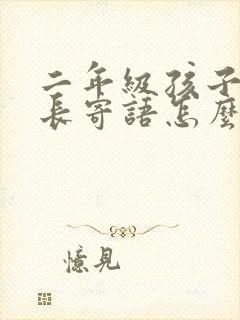 二年級孩子
長寄語怎麼
憶見